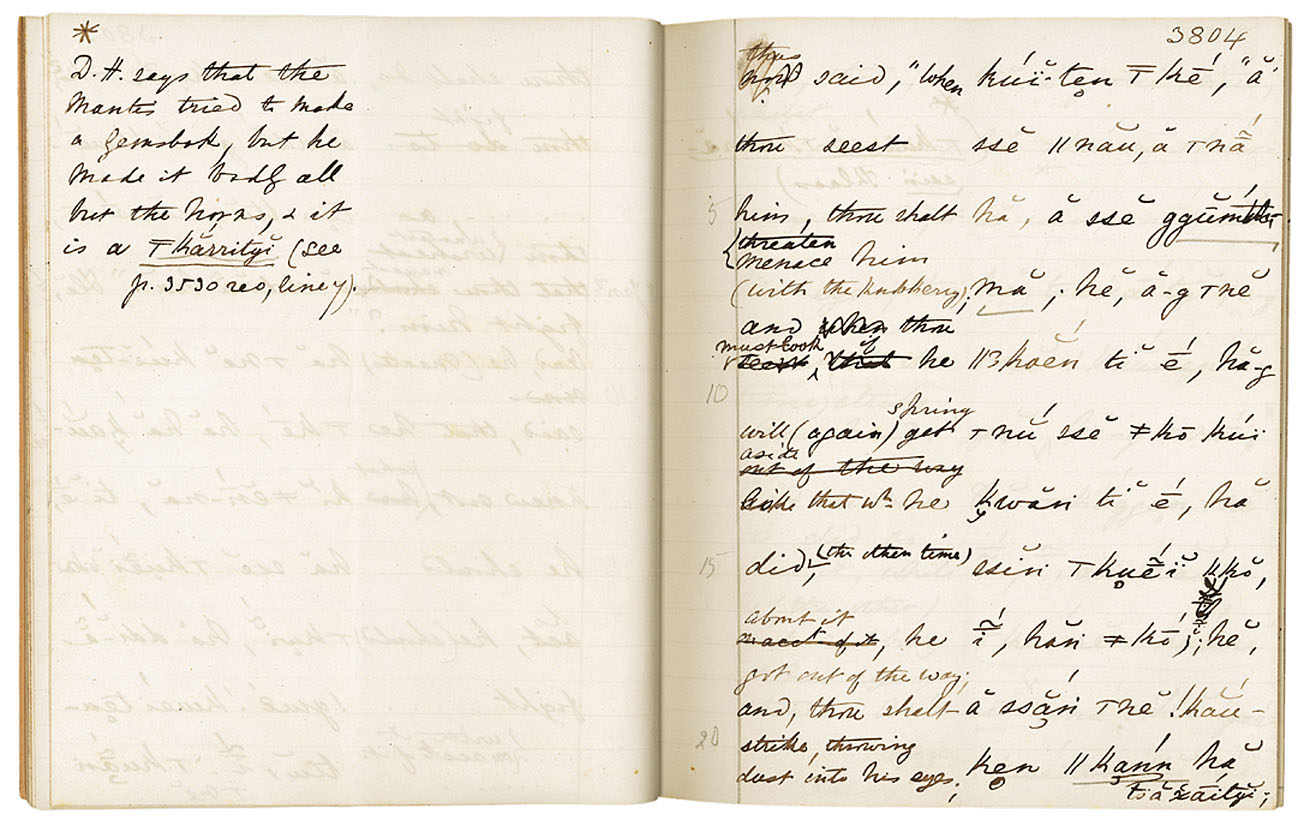 *
D. H. says that the
Mantis tried to make
a gemsbok, but he
made it badly all
but the horns, & it
is a ⊤kărrityĭ (see
p. 3530 reo, line 7).
3804
thus
said, "when kúĭ-ten ⊤ké, "ă
thou seest ssĕ ǁnău, ă ⊤nă
5 him, thou shalt hă, ă ssĕ
threaten
menace him
(with the knobkerry), mă; hĕ, ā-g ⊤nĕ
and when thou
must look if
seest, that he ǁ3koĕn tĭ ĕ́, hă-g
10
spring
will (again) get ⊤nú ssĕ ǂkō kúi
aside
out of the way
like that wh. he k̤wăṅ tĭ ĕ́, hă
15 did, (the other time) ssĭṅ
about it
he ĭ, hăṅ ǂkō; hĕ,
got out of the way;
and, thou shalt ă ssăṅ ⊤nĕ !káu-
20 strike, throwing
dust into his eyes; ken ǁkaṅn hă
tsăxáityi;